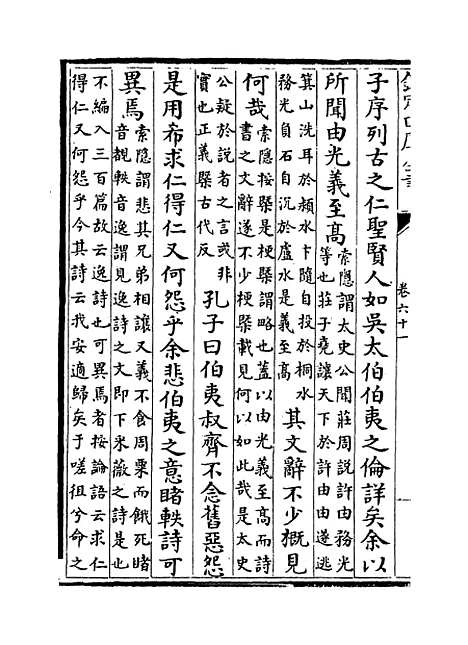 卷六十一
子序列古之仁聖賢人如吳太伯伯夷之倫詳矣余以
所聞由光義至高索隱謂太史公聞莊周說許由務光
等也莊子堯讓天下於許由由遂逃
箕山洗耳於潁水卞隨自投於桐水
務光負石自沉於廬水是義至高其文辭不少概見
何哉索隱按槩是梗槩謂略也蓋以由光義至高而詩
書之文辭遂不少梗槩載見何以如此哉是太史
公疑於說者之言或非
實也正義槩古代反孔子曰伯夷叔齊不念舊惡怨
是用希求仁得仁又何怨乎余悲伯夷之意睹軼詩可
異焉索隱謂悲其兄弟相讓又義不食周粟而餓死睹
音覩軼音逸謂見逸詩之文即下采薇之詩是也
不編入三百篇故云逸詩也可異焉者按論語云求仁
得仁又何怨乎今其詩云我安適歸矣于嗟徂兮命之